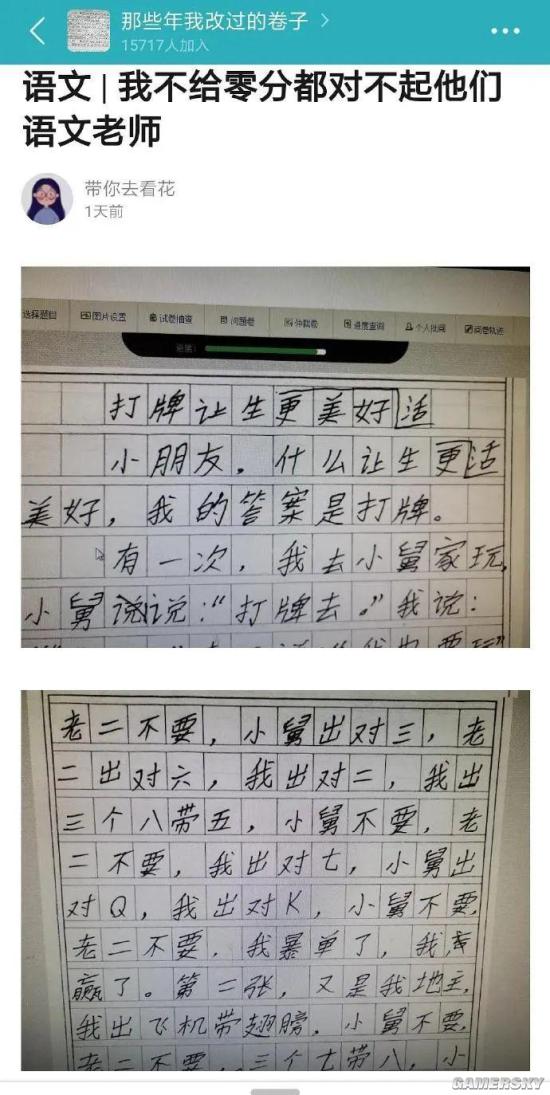 那些年我改过的卷子
15717人加入
语文 | 我不给零分都对不起他们
语文老师
带你去看花
1天前
选择题目 图片设置 试卷抽查 问题卷 仲裁卷 进度查询 个人批阅 阅卷轨迹
打牌让生更美好活
小朋友，什么让生更活
美好，我的答案是打牌。
有一次，我去小舅家玩，
小舅说说：“打牌去。”我说：
老二不要，小舅出对三，老
二出对六，我出对二，我出
三个八带五，小舅不要，老
二不要，我出对七，小舅出
对Q，我出对K，小舅不要，
老二不要，我暴单了，我
赢了。第二张，又是我地主，
我出飞机带翅膀，小舅不要，
老二不要，三个七带八，小
GAMERSKY